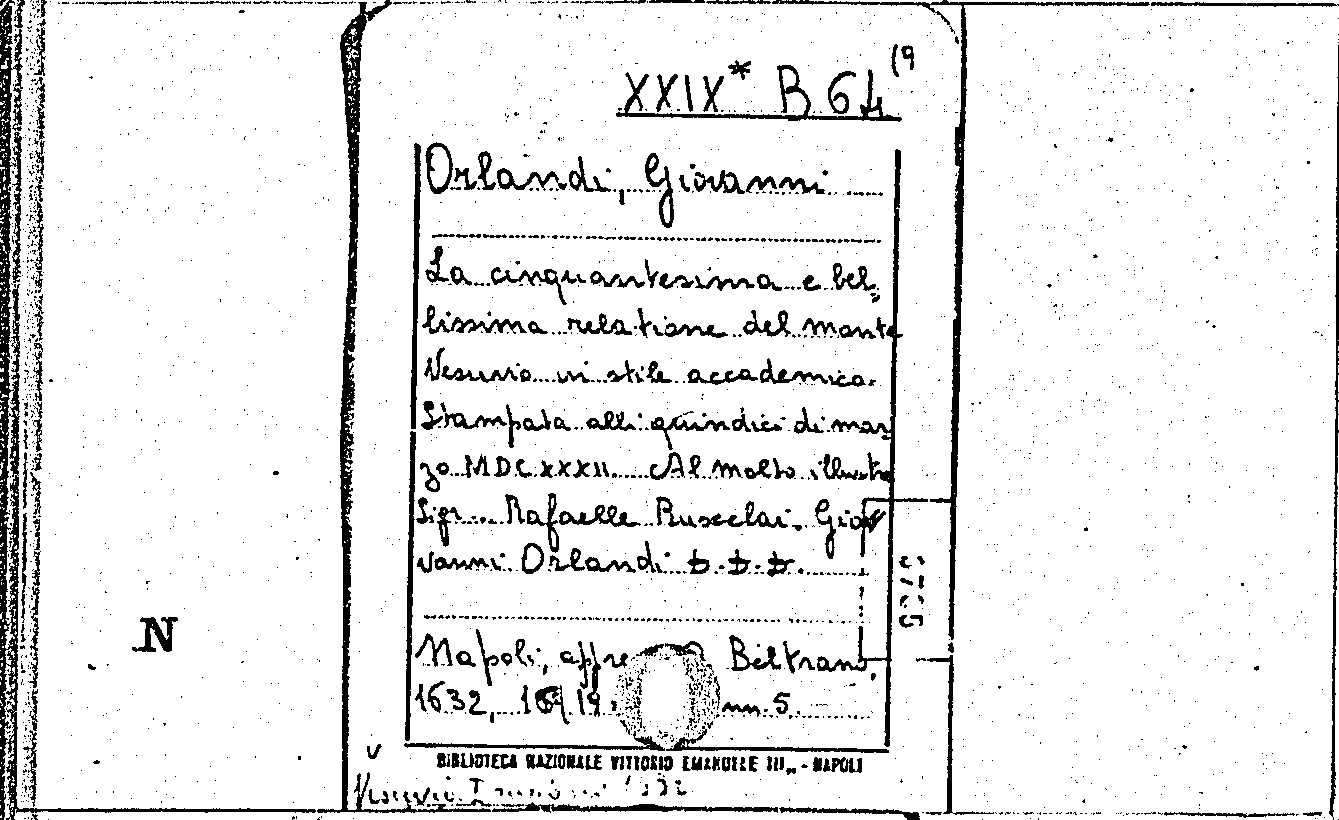 XXIX* B 64 (9
Orlandi, Giovanni
La cinquantesima e bel=
lissima relatione del monte
Vesuvio in stile accademico.
Stampata alli quindici di mar=
zo MDCXXXII. Al molto illustre
Sigr. Rafaelle Ruscelai. Gio
vanni Orlandi D.D.D.
Napoli, appre Beltrano,
1632, 19. nn. 5.
BIBLIOTECA NAZIONALE VITTORIO EMANUELE III - NAPOLI
N